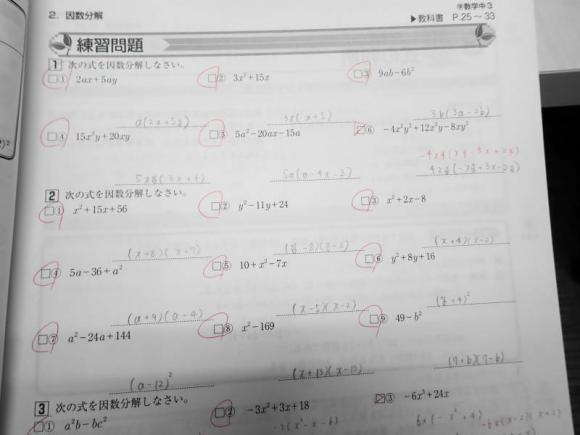 2. 因数分解
数学中3
▶教科書 P.25～33
練習問題
1 次の式を因数分解しなさい。
① 2ax+5ay
② 3x²+15x
③ 9ab-6b²
3x(x+5)
3b(3a-2b)
④ 15x²y+20xy
⑤ 5a²-20ax-15a
⑥ -4x²y²+12x²y-8xy²
5xy(3x+4)
2 次の式を因数分解しなさい。
① x²+15x+56
② y²-11y+24
③ x²+2x-8
(x+8)(x+7)
(x+4)(x-2)
④ 5a-36+a²
⑤ 10+x²-7x
⑥ y²+8y+16
(a+9)(a-4)
(x-5)(x-2)
(y+4)²
⑦ a²-24a+144
⑧ x²-169
⑨ 49-b²
(a-12)²
(x+13)(x-13)
(7+b)(7-b)
3 次の式を因数分解しなさい。
① a²b-bc²
② -3x²+3x+18
③ -6x³+24x